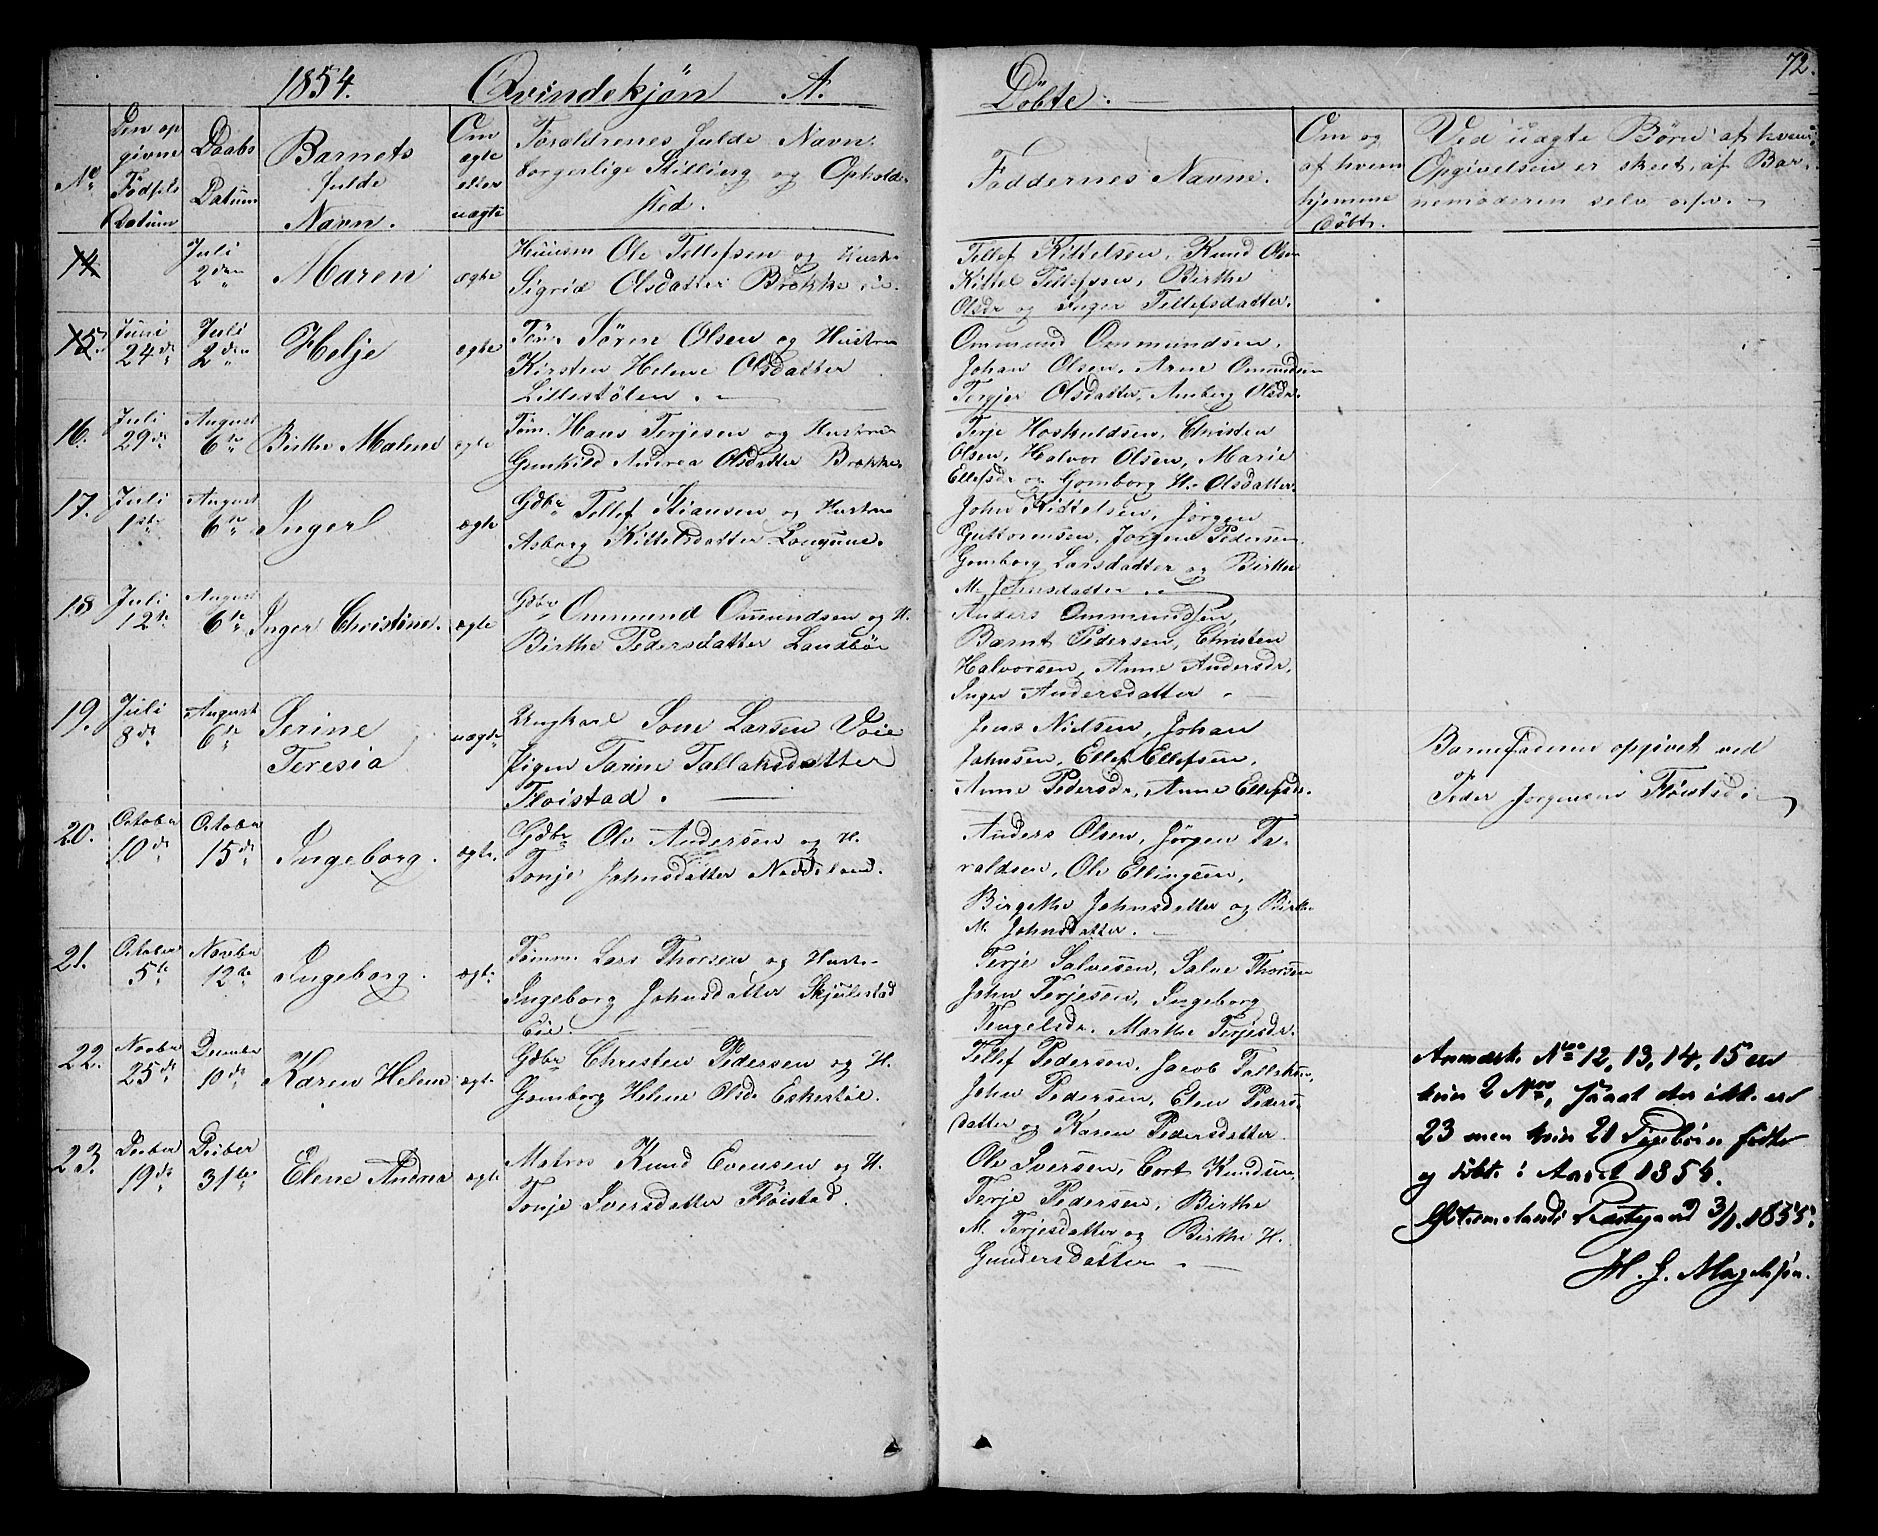 1854. Qvindekjön A.
Döbte.
72.
No
Den op
givne
Födsels
Datum
Daabs
Datum
Barnets
fulde
Navn.
Om
ægte
eller
uægte
Foræeldrenes fulde Navn,
borgerlige Stilling og Opholds
sted.
Faddernes Navne.
Om og
af hvem
hjemme
döbt.
Ved uægte Börn af hvem
Opgivelsen er skeet, af Bar-
nemoderen selv
14
Juli
2den
Maren
ægte
Huusm Ole Tellefsen og Hustru
Sigrid Olsdatter Brokke
Tellef Kittelsen, Knud Olsen
Kittel Tellefssen, Birthe
Olsdr og Inger Tellefsdatter.
15.
Juni
24de
Juli
2den
Helje
ægte
Töm. Sörin Olsen og Hustru
Kirsten Helene Olsdatter
Lillestölen.
Ommund Ommundsen,
Johan Olsen, Arne Omundsen
Tergjer Olsdatter, Amberg Olsdr.
16.
Juli
29de
August
6te
Birthe Malene
ægte
Töm. Hans Terjesen og Hustru
Gunhild Andrea Olsdatter Brokke.
Terje Hoskuldsen, Christen
Olsen, Halvor Olsen, Marie
Ellefsdr og Gomborg H. Olsdatter.
17.
Juli
1ste
August
6te
Ingerl
ægte
Gdbr Tellef Stiansen og Hustru
Asborg Kittelsdatter Longum.
John Kittelsen, Jörgen
Guttormsen, Jörgen Pedersen
Gomborg Larsdatter og Birthe
M. Johnsdatter.
18
Juli
12te
August
6te
Inger Christine.
ægte
Gdbr Ommund Ommundsen og H.
Birthe Pedersdatter Landböe
Anders Ommundsen,
Barnt Pedersen, Christen
Halvorsen, Anne Andersdr,
Inger Andersdatter.
19.
Juli
8de
August
6te
Serine
Teresia
uægte
Ungkarl Sone Larsen Voie
Pigen Tarine Tallaksdatter
Floistad.
Jens Nielsen, Johan
Johnsen, Ellef Ellefsen,
Anne Pedersdr, Anne Ellefsdr.
Barnefaderen opgivet ved
Peder Jorgensen Flöistad
20.
October
10de
October
15de
Ingeborg.
ægte.
Gdbr Ole Andersen og H.
Tonje Johnsdatter Naddeland.
Anders Olsen, Jörgen Ta-
raldsen, Ole Ellingsen,
Birgethe Johnsdatter og Birthe
M. Johnsdatter.
21.
October
5te
Novbr
12te
Ingeborg.
ægte
Tömm. Lars Thorsen og Hust-
Ingeborg Johnsdatter Skjulestad
Eie
Terje Salvesen, Salve Thorsen
John Terjesen, Ingeborg
Tengelsdr. Marthe Terjesdr.
22.
Novbr
25de
Decembr
10de
Karen Helene
ægte
Gdbr Christen Pedersen og H.
Gomborg Helene Olsdr Eskestöl.
Tellef Pedersen, Jacob Tallaksen,
John Pedersen, Elen Peders-
datter og Karen Pedersdatter.
Anmærk. Noo 12, 13, 14, 15 er
kun 2 Noo, saaat der ikke er
23 men kun 21 Pigebörn födte
og döbte i Aaret 1854.
Præstegaard 3/1 1855.
23.
Decber
19de
Decber
31te
Elene Andrea
ægte
Matros Knud Evensen og H.
Tonje Iversdatter Flöistad.
Ole Iversen, Cort Knudsen,
Terje Pedersen, Birthe
M. Terjesdatter og Birthe H.
Gundersdatter